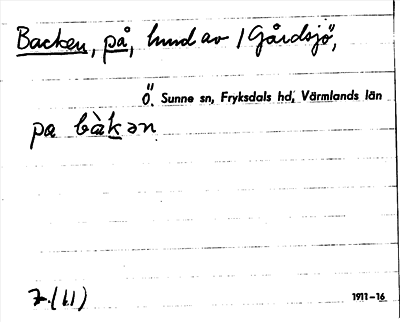 Backen, på, hund av / Gårdsjö,
Ö. Sunne sn, Fryksdals hd, Värmlands län
pa bàkən
1911-16